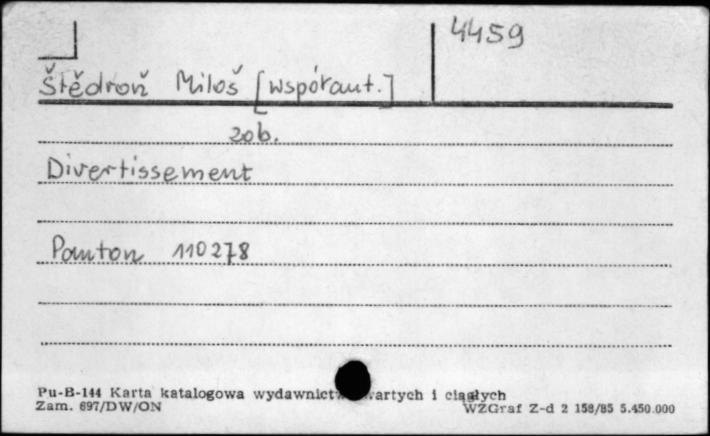 4459
Štědroň Miloš [współaut.]
zob.
Divertissement
Panton 110278
Pu-B-144 Karta katalogowa wydawnict artych i ciągłych
Zam. 697/DW/ON WZGraf Z-d 2 158/85 5.450.000